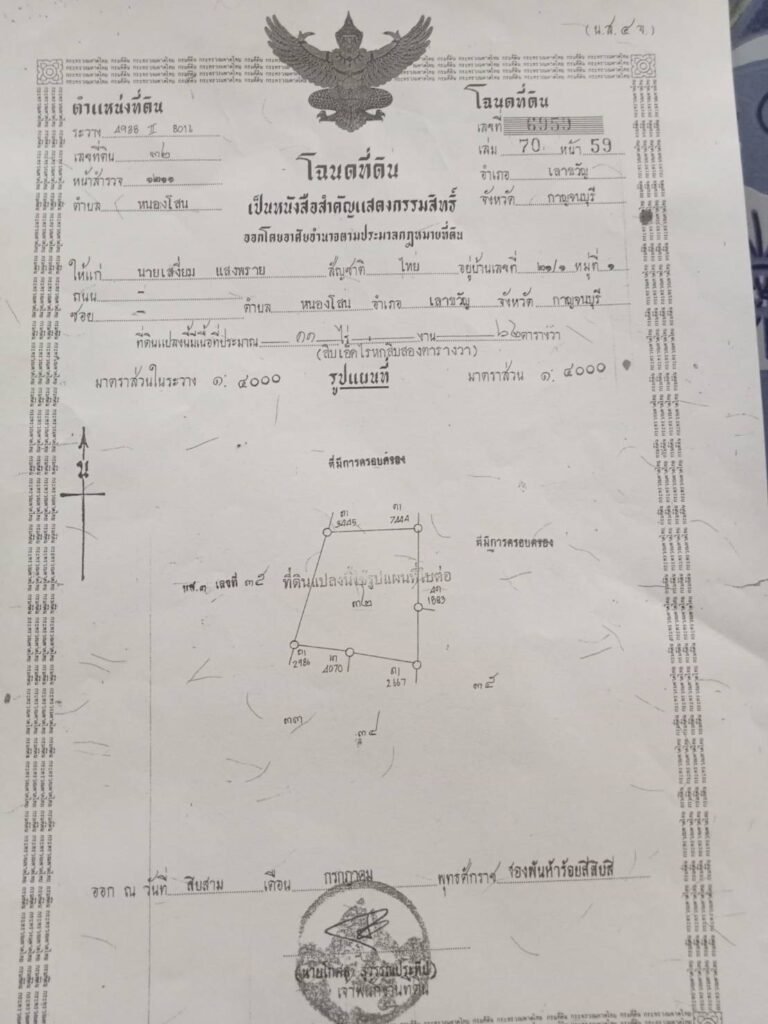 (น.ส. ๔ จ.)
ตำแหน่งที่ดิน
ระวาง 4936 II 8016
เลขที่ดิน ๓๒
หน้าสำรวจ ๑๒๑๑
ตำบล หนองโสน
โฉนดที่ดิน
เลขที่ 6959
เล่ม 70 หน้า 59
อำเภอ เลาขวัญ
จังหวัด กาญจนบุรี
โฉนดที่ดิน
เป็นหนังสือสำคัญแสดงกรรมสิทธิ์
ออกโดยอาศัยอำนาจตามประมวลกฎหมายที่ดิน
ให้แก่ นายเสงี่ยม แสงพราย สัญชาติ ไทย อยู่บ้านเลขที่ ๒๑/๑ หมู่ที่ ๑
ถนน –
ซอย – ตำบล หนองโสน อำเภอ เลาขวัญ จังหวัด กาญจนบุรี
ที่ดินแปลงนี้มีเนื้อที่ประมาณ ๑๑ ไร่ - งาน ๖๒ ตารางวา
(สิบเอ็ดไร่หกสิบสองตารางวา)
มาตราส่วนในระวาง ๑: ๔๐๐๐ รูปแผนที่ มาตราส่วน ๑: ๔๐๐๐
น
ที่มีการครอบครอง
ที่มีการครอบครอง
นส.๓ เลขที่ ๓๕ ที่ดินแปลงนี้ใช้รูปแผนที่ใบต่อ
๓๒
1883
2986
4070
2667
๓๕
๓๓
๓๔
ออก ณ วันที่ สิบสาม เดือน กรกฎาคม พุทธศักราช สองพันห้าร้อยสี่สิบสี่
เจ้าพนักงานที่ดิน